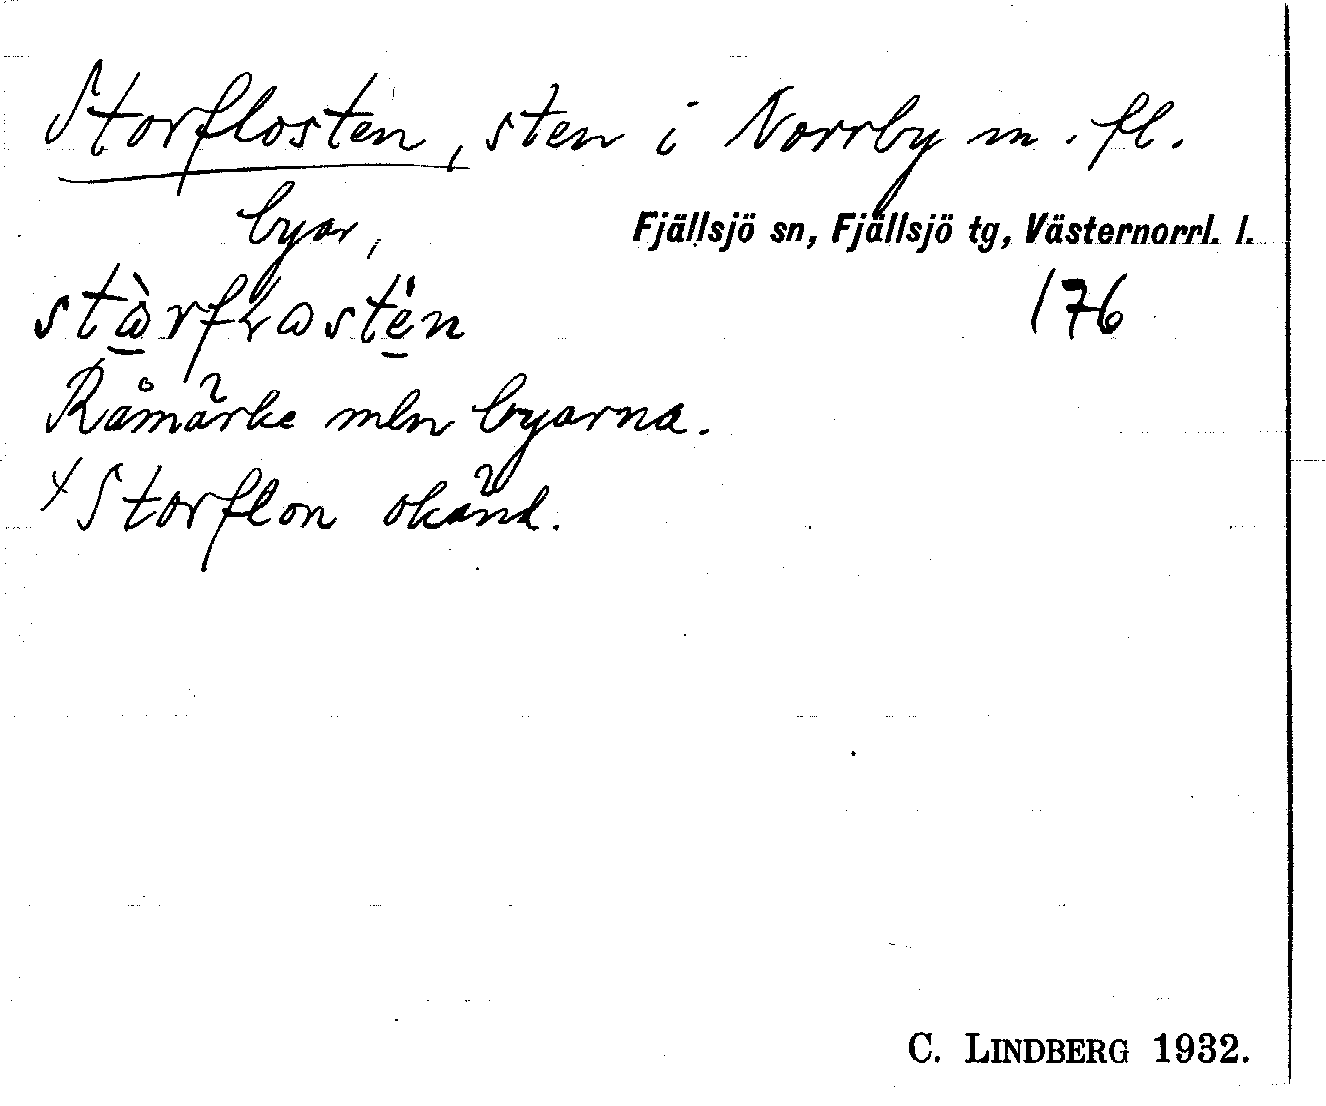 Storflosten, sten i Norrby m. fl.
byar,
Fjällsjö sn, Fjällsjö tg, Västernorrl. l.
176
Råmärke mln byarna.
Storflon okänd.
C. LINDBERG 1932.